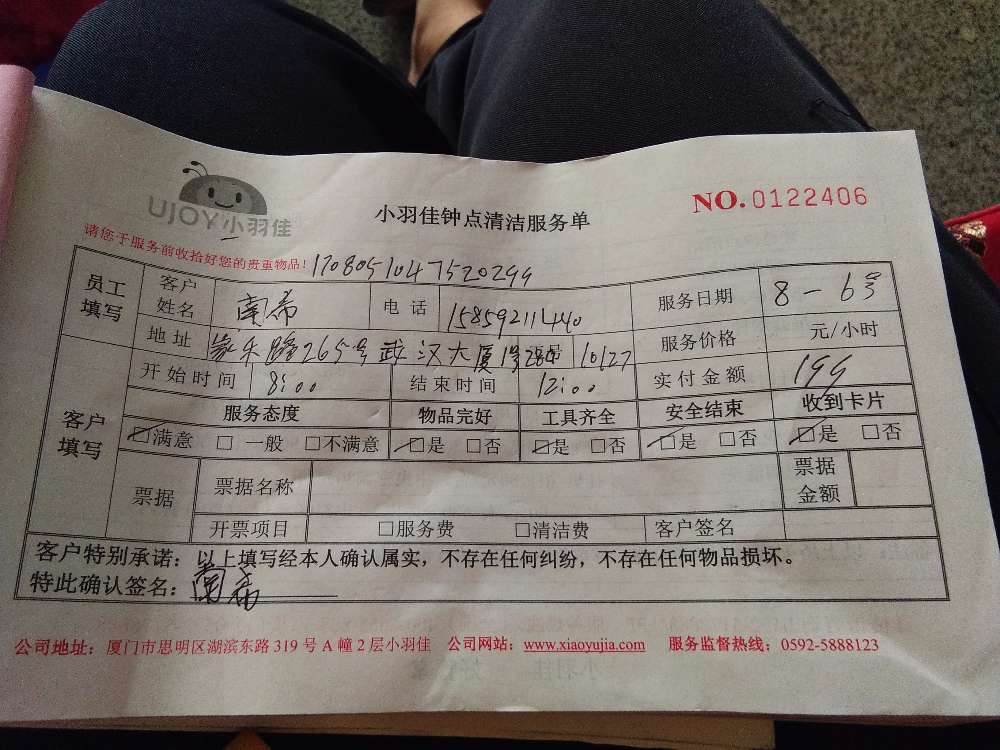 UJOY小羽佳
小羽佳钟点清洁服务单
NO.0122406
请您于服务前收拾好您的贵重物品!
1708051047520299
员工填写 客户姓名 南希 电话 15859211440 服务日期 8-6号
地址 265号武汉大厦 10127 服务价格 元/小时
开始时间 8:00 结束时间 12:00 实付金额 199
客户填写 服务态度 物品完好 工具齐全 安全结束 收到卡片
☑满意 □一般 □不满意 ☑是 □否 ☑是 □否 ☑是 □否 ☑是 □否
票据 票据名称 票据金额
开票项目 □服务费 □清洁费 客户签名
客户特别承诺：以上填写经本人确认属实，不存在任何纠纷，不存在任何物品损坏。
特此确认签名：南希
公司地址：厦门市思明区湖滨东路319号A幢2层小羽佳 公司网站：www.xiaoyujia.com 服务监督热线：0592-5888123